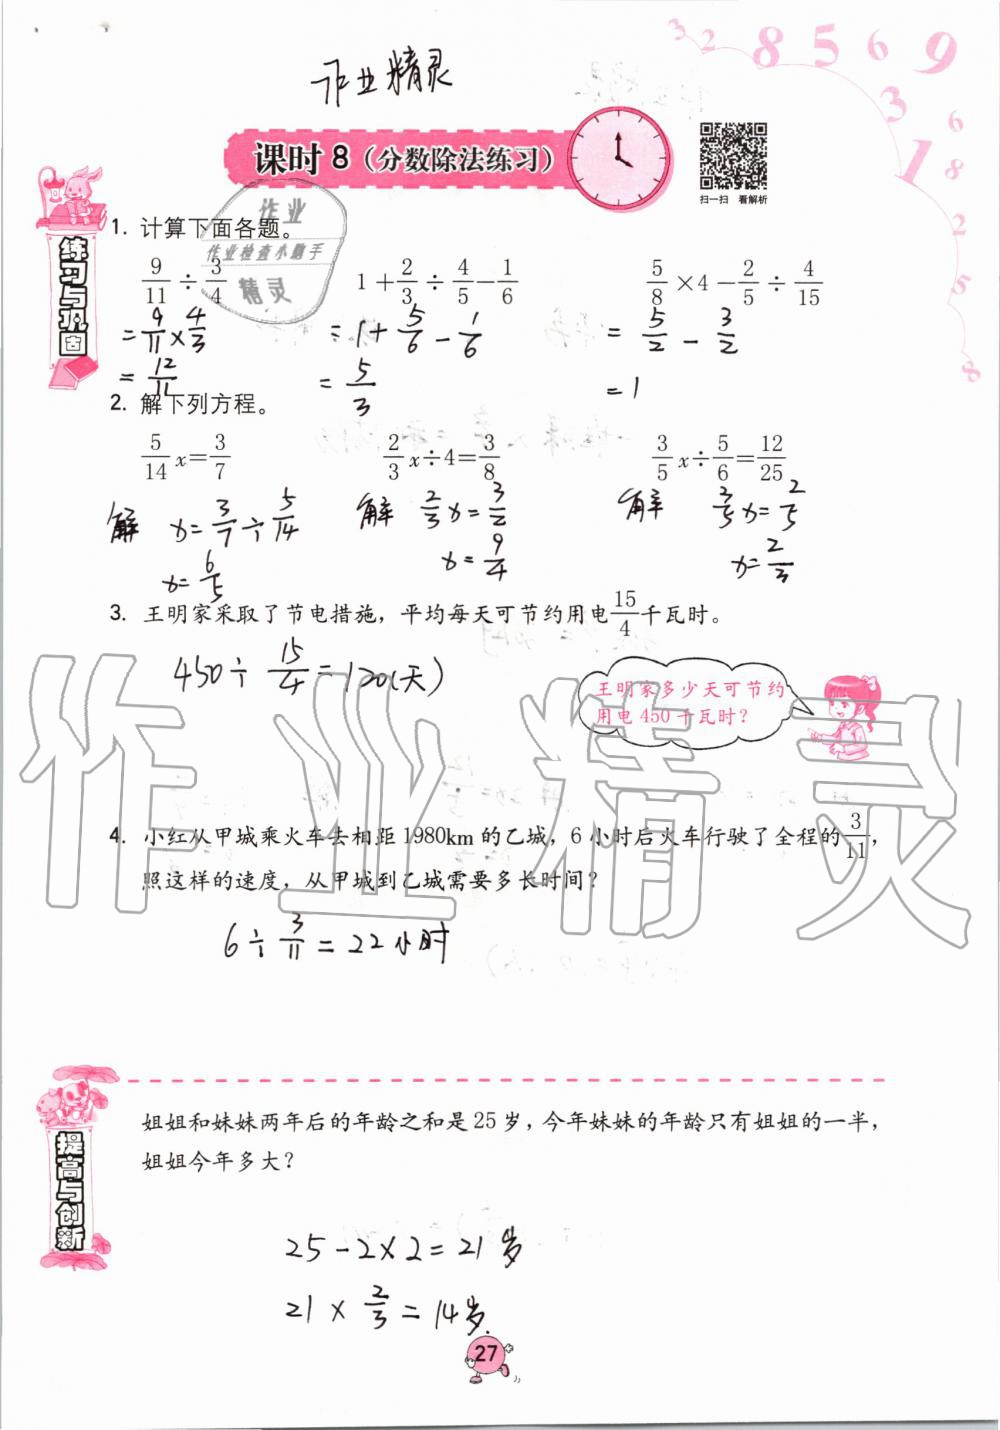 3 2 8 5 6 9 3 1 6 8 2 5 8
作业精灵
课时 8（分数除法练习）
扫一扫 看解析
作业
作业检查小助手
精灵
练习与巩固
1. 计算下面各题。
9/11 ÷ 3/4    1 + 2/3 ÷ 4/5 − 1/6    5/8 × 4 − 2/5 ÷ 4/15
= 9/11 × 4/3    = 1 + 5/6 − 1/6    = 5/2 − 3/2
= 12/11    = 5/3    = 1
2. 解下列方程。
5/14 x = 3/7    2/3 x ÷ 4 = 3/8    3/5 x ÷ 5/6 = 12/25
解 x = 3/7 ÷ 5/14    解 2/3 x = 3/2    解 3/5 x = 2/5
x = 6/5    x = 9/4    x = 2/3
3. 王明家采取了节电措施，平均每天可节约用电15/4千瓦时。
450 ÷ 15/4 = 120(天)
王明家多少天可节约
用电 450 千瓦时？
作业精灵
4. 小红从甲城乘火车去相距 1980km 的乙城，6 小时后火车行驶了全程的3/11，
照这样的速度，从甲城到乙城需要多长时间？
6 ÷ 3/11 = 22 小时
提高与创新
姐姐和妹妹两年后的年龄之和是 25 岁，今年妹妹的年龄只有姐姐的一半，
姐姐今年多大？
25 − 2 × 2 = 21 岁
21 × 2/3 = 14岁.
27